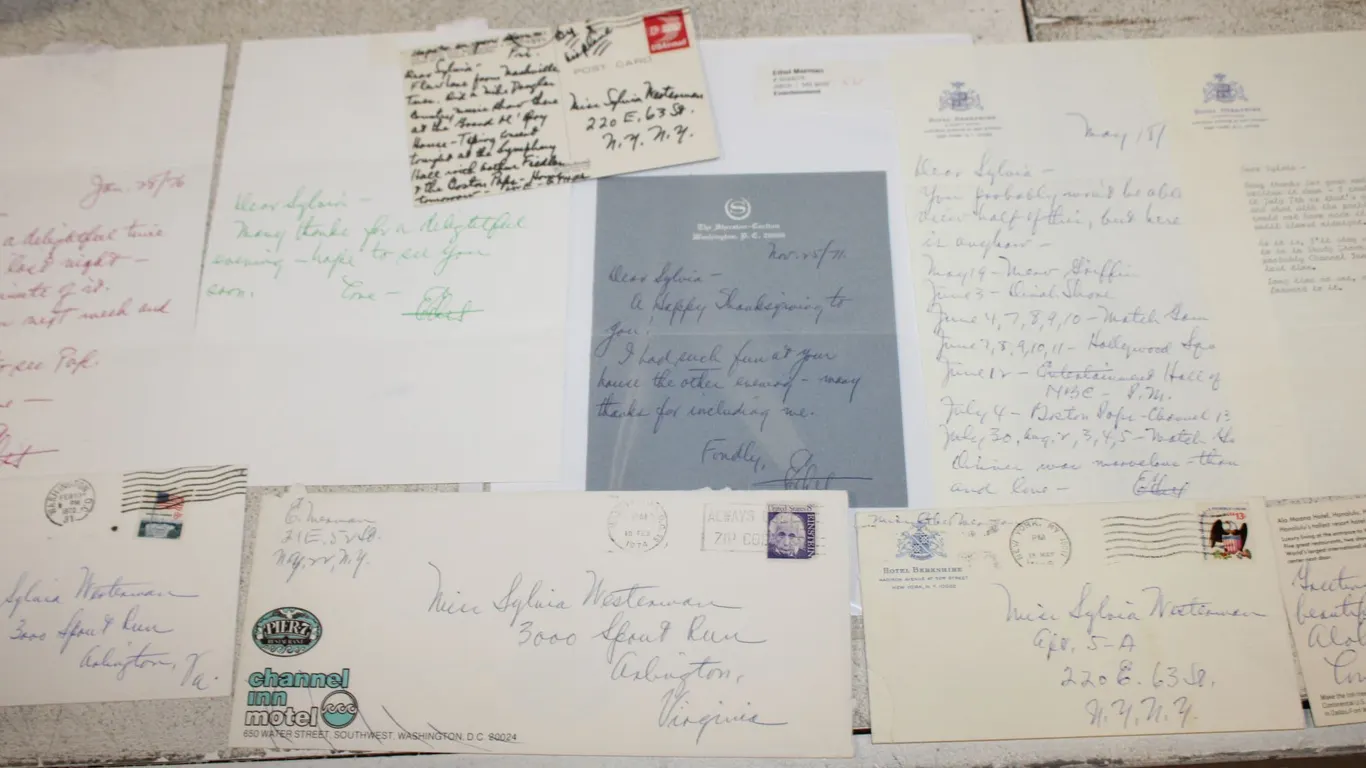 Jan. 28/76
a delightful time
last night -
minute of it.
next week and
to see Pop.
Dear Sylvia -
Many thanks for a delightful
evening - hope to see you
soon.
Love -
Ethel
Fri.
Dear Sylvia -
Flew here from Nashville
Tues. Did a Mike Douglas
Country music show there
at the Grand Ol' Opry
House - Taping concert
tonight at the Symphony
Hall with Arthur Fiedler
& the Boston Pops - Home
tomorrow - Love - Ethel
POST CARD
Miss Sylvia Westerman
220 E. 63 St.
N.Y. N.Y.
The Sheraton-Carlton
Washington, D. C. 20006
Nov. 25/71
Dear Sylvia -
A Happy Thanksgiving to
you!
I had such fun at your
house the other evening - many
thanks for including me.
Fondly,
Ethel
HOTEL BERKSHIRE
May 18/
Dear Sylvia -
You probably won't be able
view half of this, but here
is anyhow -
May 19 - Merv Griffin
June 3 - Dinah Shore
June 4, 7, 8, 9, 10 - Match Gam
June 7, 8, 9, 10, 11 - Hollywood Sqs
June 12 - Entertainment Hall of
NBC - P.M.
July 4 - Boston Pops - Channel 13
July, 30, Aug. 2, 3, 4, 5 - Match
Dinner was marvelous - than
and love -
Ethel
HOTEL BERKSHIRE
WASHINGTON, D.C.
Sylvia Westerman
3000 Spout Run
Arlington, Va.
E. Merman
21 E. 52 St.
N.Y. 22, N.Y.
ALWAYS
ZIP CO
EINSTEIN
Miss Sylvia Westerman
3000 Spout Run
Arlington,
Virginia
PIER 7
RESTAURANT
channel
inn
motel
650 WATER STREET, SOUTHWEST, WASHINGTON, D.C. 20024
HOTEL BERKSHIRE
MADISON AVENUE AT 52ND STREET
NEW YORK, N.Y. 10022
NEW YORK, NY
PM
13c
Miss Sylvia Westerman
Apt. 5-A
220 E. 63 St.
N.Y. N.Y.
Ala Moana Hotel, Honolulu,
Luxury living at the entrance